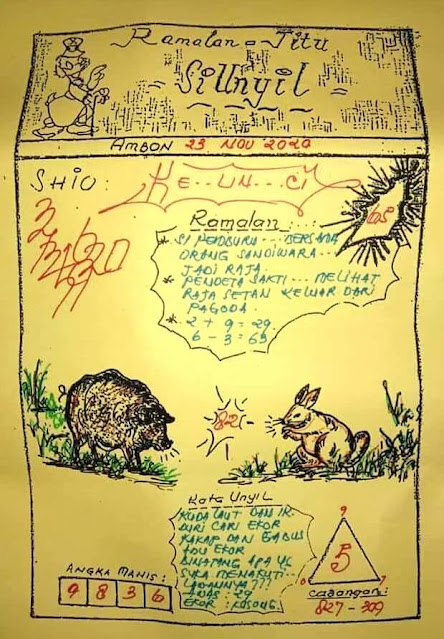 Ramalan = Jitu
Si Unyil
AMBON 23 NOV 2020
SHIO:
KE..LIN...CI
68
Ramalan
* SI PEMBURU... BERSAMA
ORANG SANDIWARA...
JADI RAJA.
* PENDETA SAKTI... MELIHAT
RAJA SETAN KELUAR DARI
PAGODA.
* 2 + 9 = 29.
6 - 3 = 63
821-
Kata Unyil
KUDA LAUT DAN IK
DURI CARI EKOR
KAKAP DAN GABUS
ADU EKOR
BINATANG APA YG
SUKA MENAKUTI..
LAWANNYA???
AWAS: 29
EKOR: KOSONG
ANGKA MANIS:
9 8 3 6
9
5
0 7
Cabangan:
827 - 309